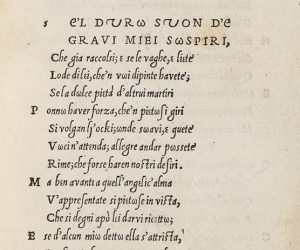 s ε'L DURω SUωN D'ε
GRAVI MIEI SωSPIRI,
Che gia raccolsi; e se le vaghe, e liεte
Lode di lii, che'n vui dipinte havete;
Se la dulce pietà d'altrui martiri
P onnω haver forza, che'n pietωsi giri
Si volgan l'ωcki; unde sωavi, e quεte
Vωci n'attenda; allegre andar pωssete
Rime; che forse haren nostri desiri.
M a ben avanti a quell'angelic'alma
V'appresentate sì pietωse in vista,
Che si degni apω lεi darvi ricεttω;
E se d'alcun miω dettω ella s'attrista,